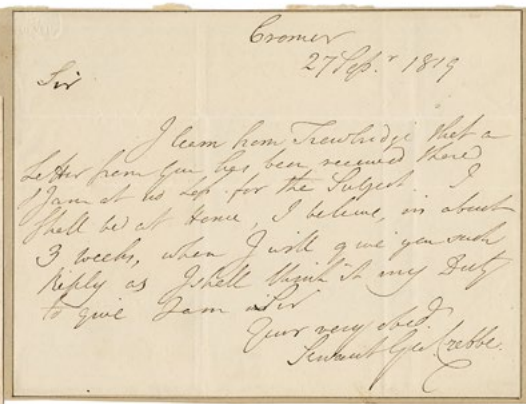 Cromer
27 Sepr. 1819
Sir
I learn from Trowbridge that a
Letter from you has been received there
I am at no for the Subject. I
shall be at Home, I believe, in about
3 weeks, when I will give you such
Reply as I shall think it my Duty
to give I am Sir
Your very obedt.
Servant Geo Crabbe.